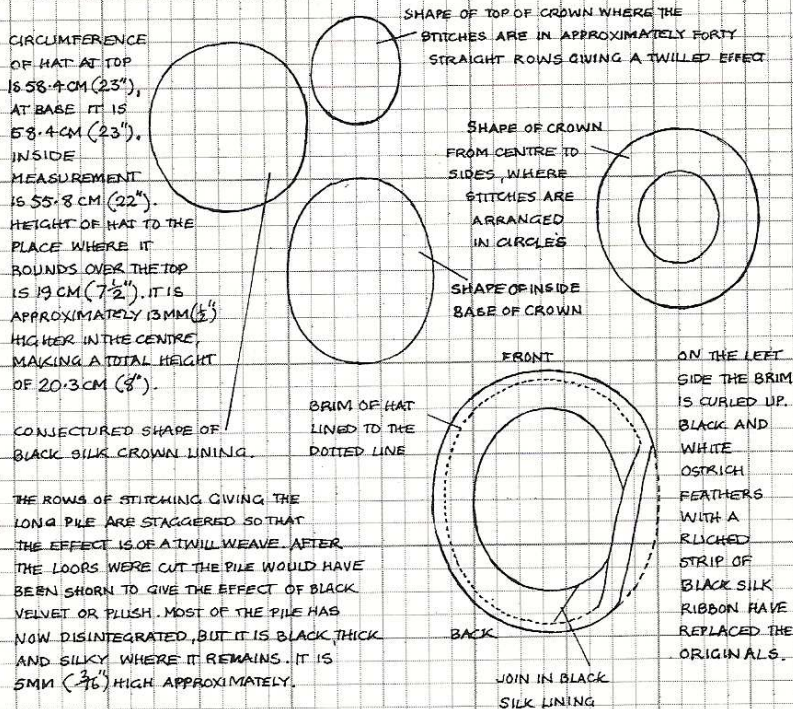 CIRCUMFERENCE
OF HAT AT TOP
IS 58·4CM (23"),
AT BASE IT IS
58·4CM (23").
INSIDE
MEASUREMENT
IS 55·8 CM (22").
HEIGHT OF HAT TO THE
PLACE WHERE IT
BOUNDS OVER THE TOP
IS 19 CM (7½"). IT IS
APPROXIMATELY 13MM (½")
HIGHER IN THE CENTRE,
MAKING A TOTAL HEIGHT
OF 20·3CM (8").
CONJECTURED SHAPE OF
BLACK SILK CROWN LINING.
THE ROWS OF STITCHING GIVING THE
LONG PILE ARE STAGGERED SO THAT
THE EFFECT IS OF A TWILL WEAVE. AFTER
THE LOOPS WERE CUT THE PILE WOULD HAVE
BEEN SHORN TO GIVE THE EFFECT OF BLACK
VELVET OR PLUSH. MOST OF THE PILE HAS
NOW DISINTEGRATED, BUT IT IS BLACK, THICK
AND SILKY WHERE IT REMAINS. IT IS
5MM (3/16") HIGH APPROXIMATELY.
SHAPE OF TOP OF CROWN WHERE THE
STITCHES ARE IN APPROXIMATELY FORTY
STRAIGHT ROWS GIVING A TWILLED EFFECT
SHAPE OF CROWN
FROM CENTRE TO
SIDES, WHERE
STITCHES ARE
ARRANGED
IN CIRCLES
SHAPE OF INSIDE
BASE OF CROWN
BRIM OF HAT
LINED TO THE
DOTTED LINE
FRONT
BACK
JOIN IN BLACK
SILK LINING
ON THE LEFT
SIDE THE BRIM
IS CURLED UP.
BLACK AND
WHITE
OSTRICH
FEATHERS
WITH A
RUCHED
STRIP OF
BLACK SILK
RIBBON HAVE
REPLACED THE
ORIGINALS.